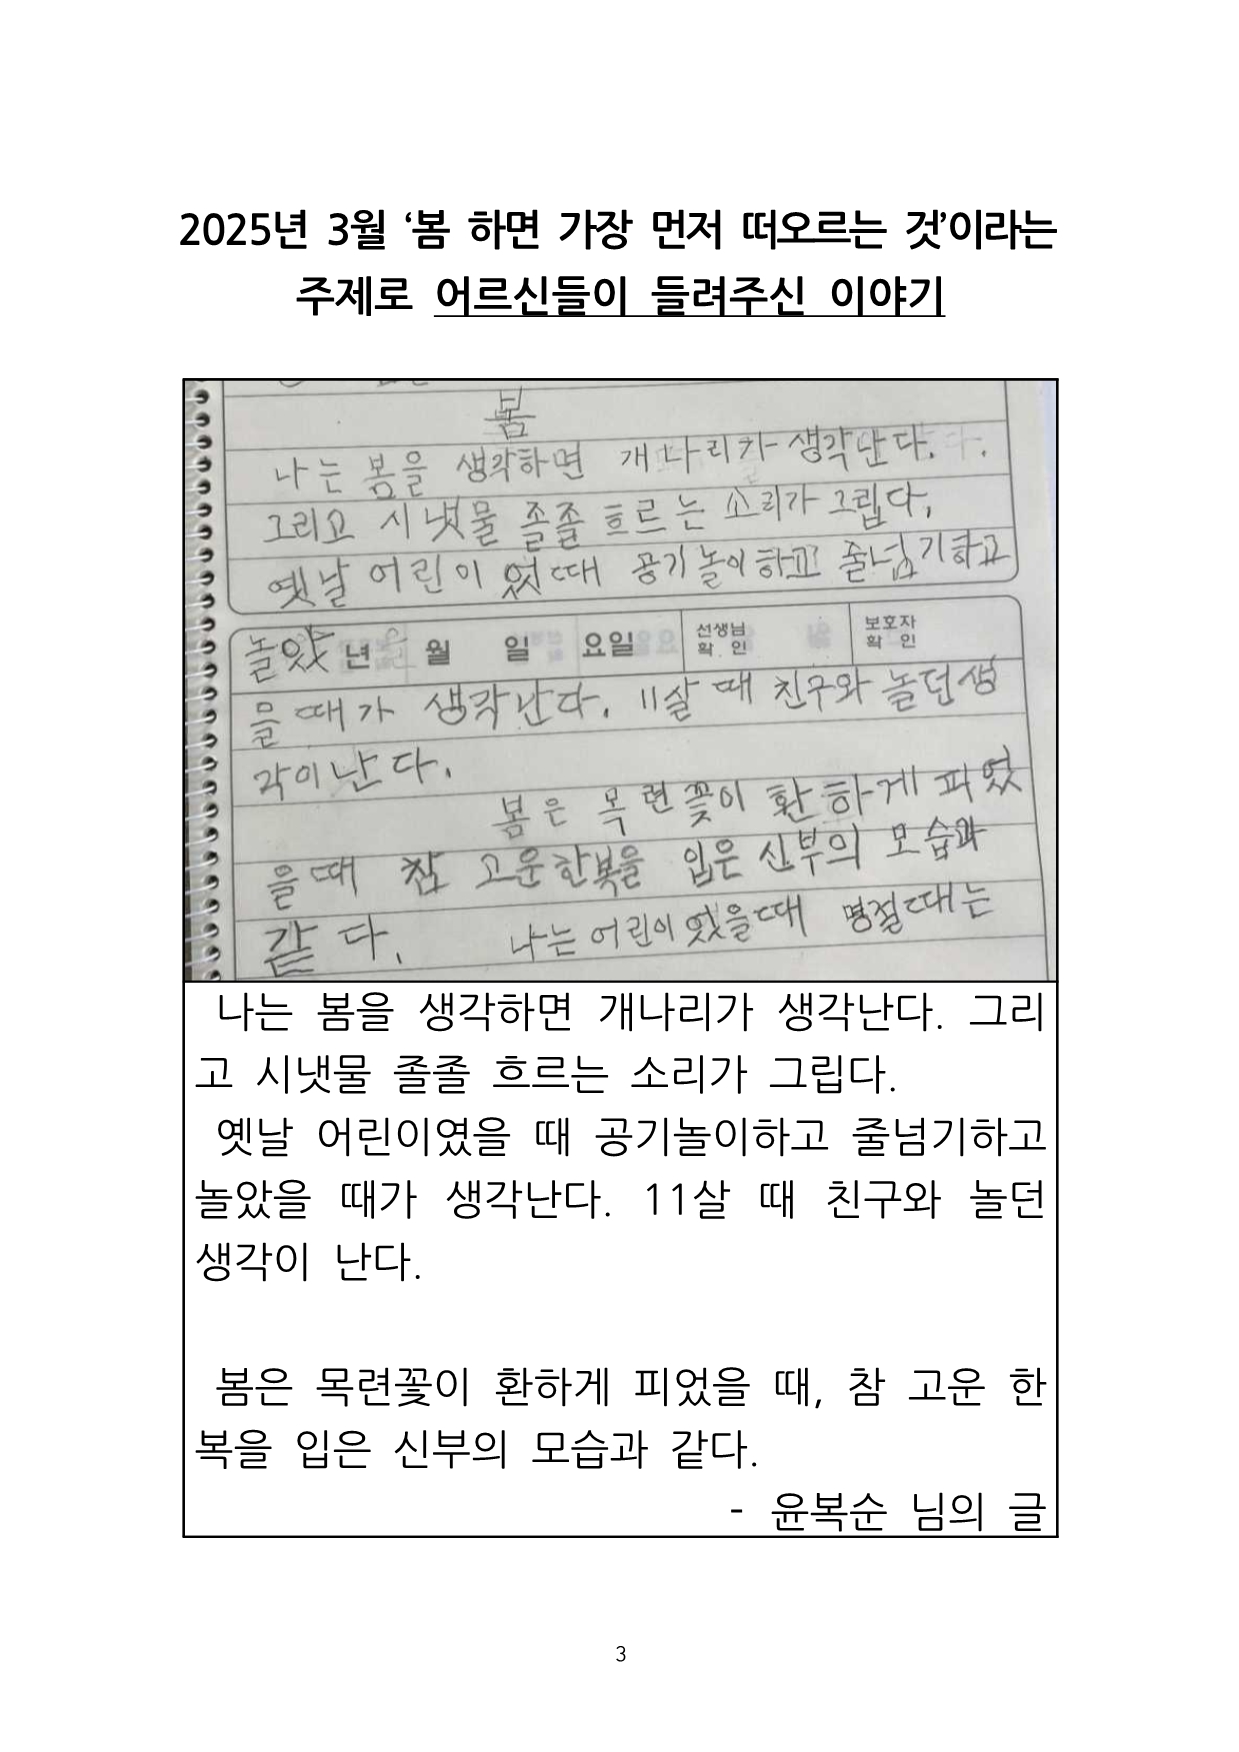 2025년 3월 ‘봄 하면 가장 먼저 떠오르는 것’이라는
주제로 어르신들이 들려주신 이야기
봄
나는 봄을 생각하면 개나리가 생각난다.
그리고 시냇물 졸졸 흐르는 소리가 그립다,
옛날 어린이 었때 공기놀이하고 줄넘기하고
놀았 년 을 월 일 요일 선생님 확 인 보호자 확 인
을때가 생각난다. 11살 때 친구와 놀던생
각이난다.
봄은 목련꽃이 환하게 피었
을때 참 고운한복을 입은 신부의 모습과
같다. 나는어린이었을때 명절때는
나는 봄을 생각하면 개나리가 생각난다. 그리
고 시냇물 졸졸 흐르는 소리가 그립다.
옛날 어린이였을 때 공기놀이하고 줄넘기하고
놀았을 때가 생각난다. 11살 때 친구와 놀던
생각이 난다.
봄은 목련꽃이 환하게 피었을 때, 참 고운 한
복을 입은 신부의 모습과 같다.
- 윤복순 님의 글
3